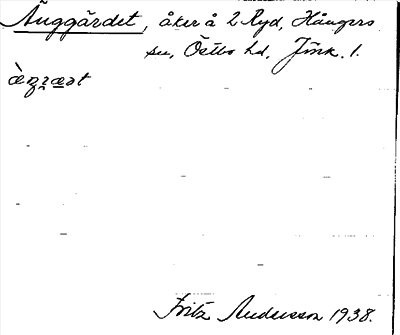 Äuggärdet, åker å 2 Ryd, Hångers
sn, Östbo hd, Jönk. l.
Fritz Andersson 1938.